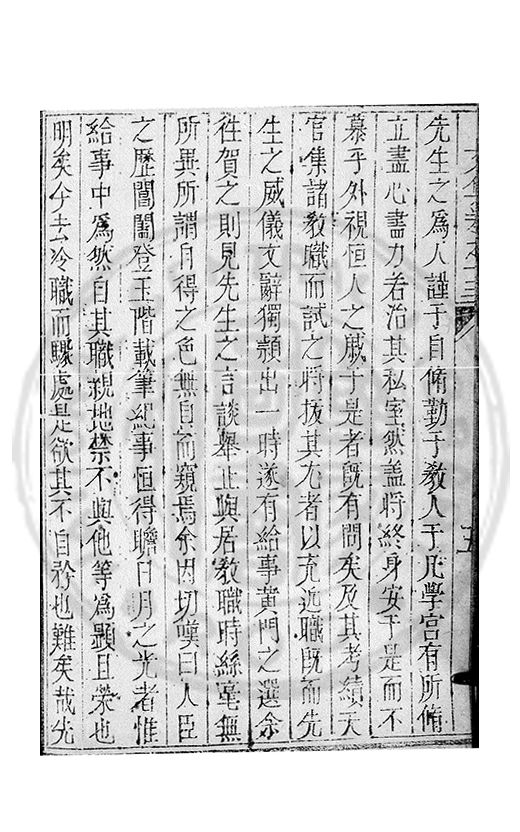 先生之為人謹于自脩勤于敎人于凡學宮有所脩
立盡心盡力若治其私室然盖將終身安于是而不
慕乎外視恒人之戚于是者旣有間矣及其考績天
官集諸敎職而試之將拔其尤者以充近職旣而先
生之威儀文辭獨頴出一時遂有給事黃門之選余
徃賀之則見先生之言談舉止與居敎職時絲毫無
所異所謂自得之色無自而窺焉余因切嘆曰人臣
之歷閶闔登玉階載筆紀事恒得瞻日月之光者惟
給事中爲然自其職親地禁不與他等爲顯且榮也
明矣今去冷職而驟處是欲其不自矜也難矣哉先